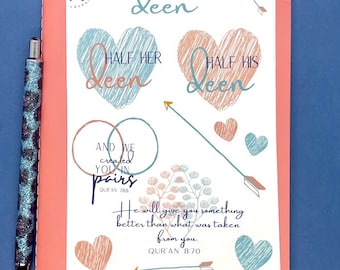 deen
HALF HER
deen
HALF HIS
deen
AND WE
created
YOU IN
pairs
QUR'AN 78:8
He will give you something
better than what was taken
from you.
QUR'AN 8:70